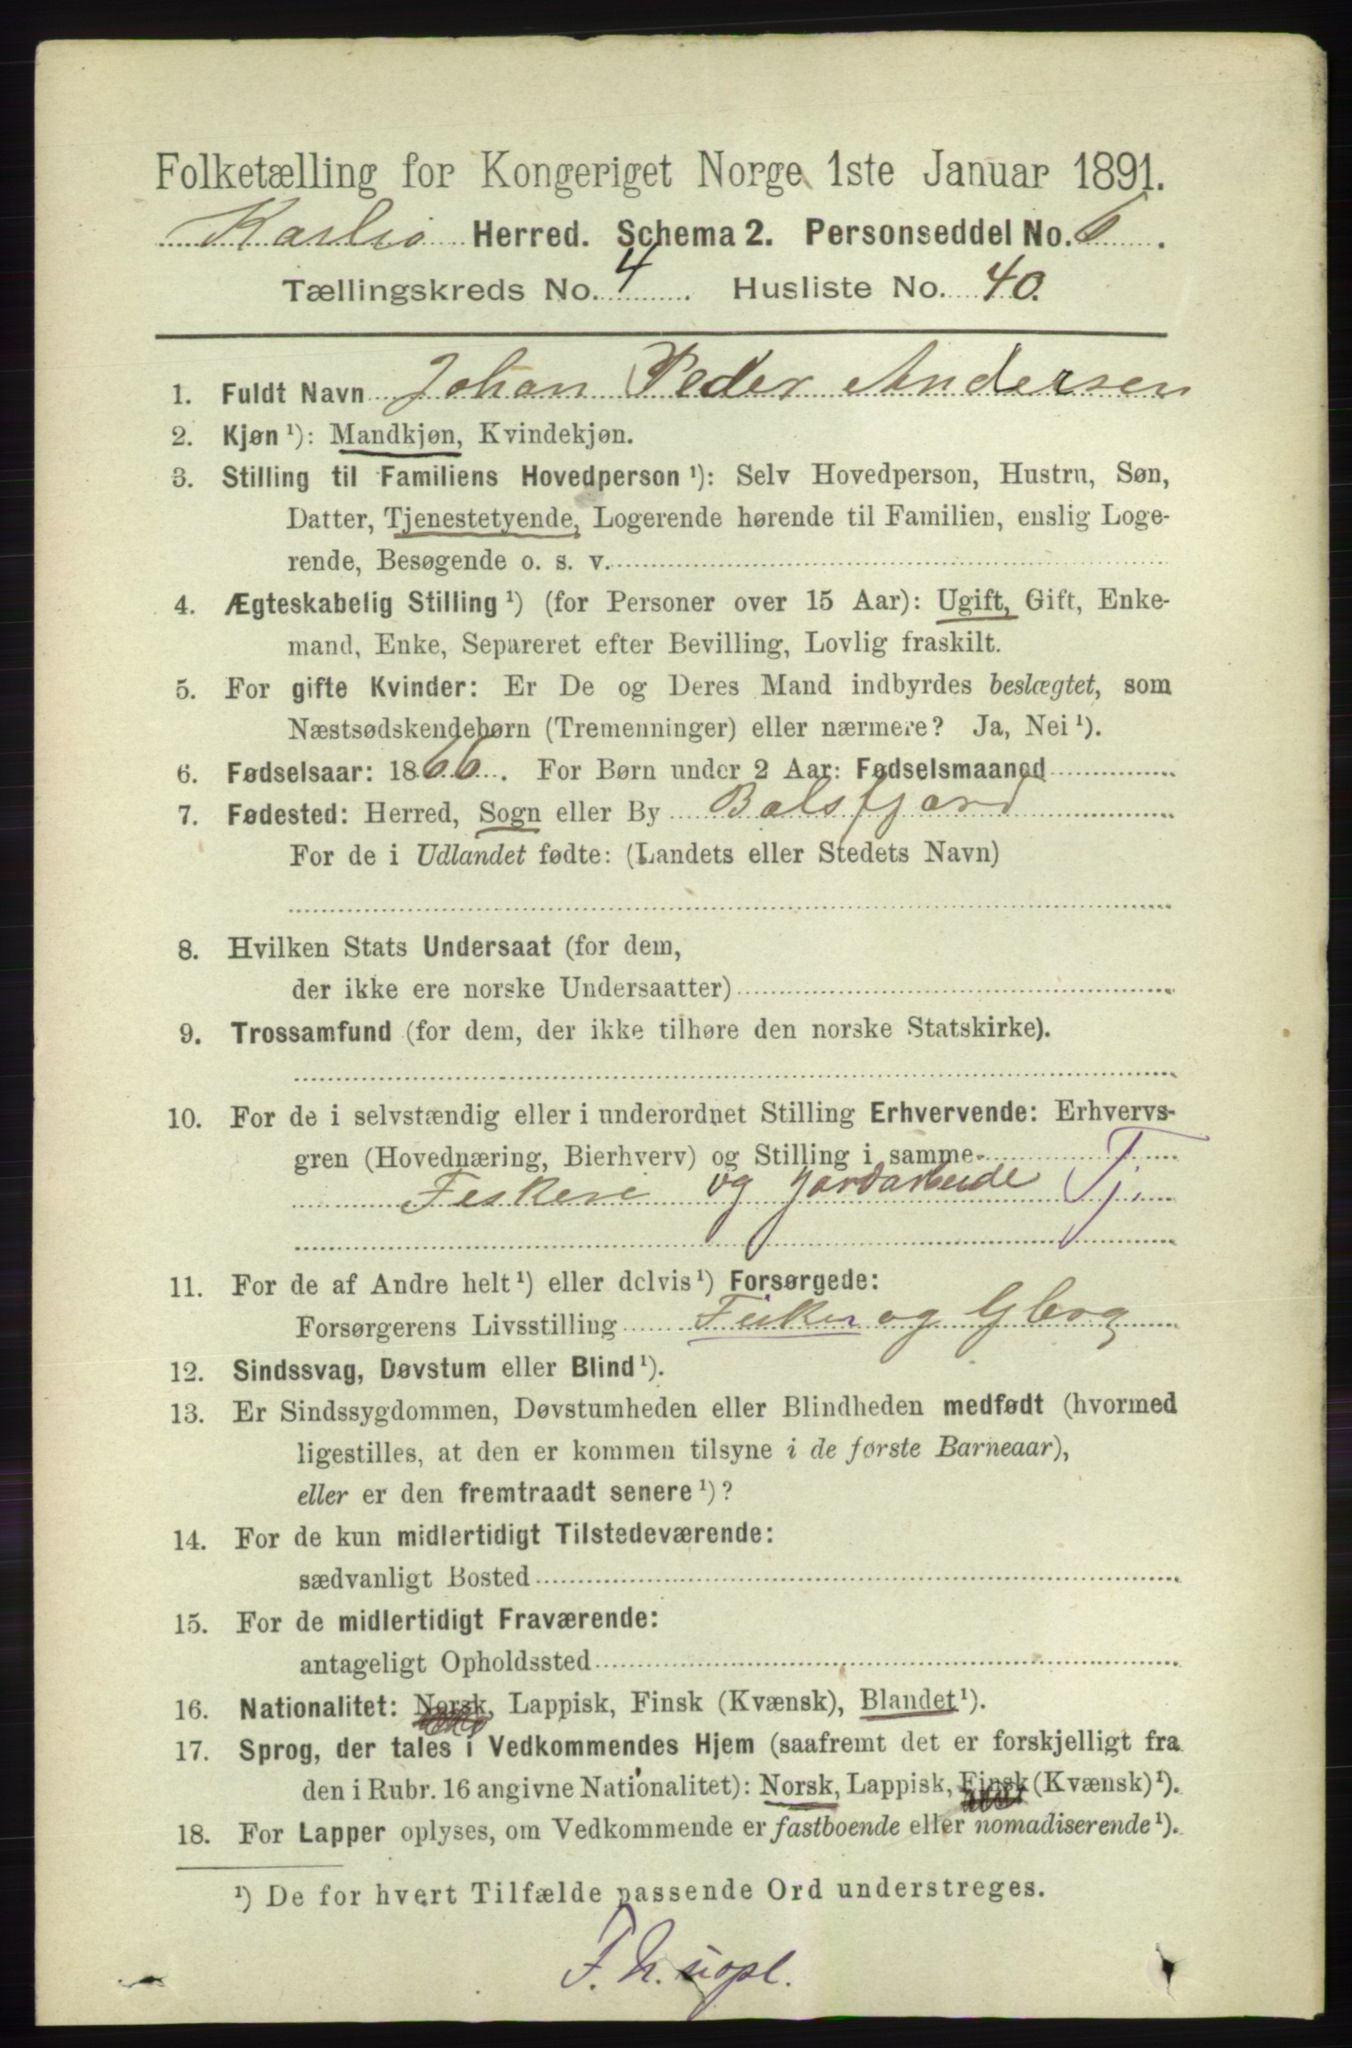 Folketælling for Kongeriget Norge 1ste Januar 1891.
Karlsø Herred. Schema 2. Personseddel No. 6.
Tællingskreds No. 4. Husliste No. 40.
1. Fuldt Navn Johan Peder Andersen
2. Kjøn ¹): Mandkjøn, Kvindekjøn.
3. Stilling til Familiens Hovedperson ¹): Selv Hovedperson, Hustru, Søn,
Datter, Tjenestetyende, Logerende hørende til Familien, enslig Loge-
rende, Besøgende o. s. v.
4. Ægteskabelig Stilling ¹) (for Personer over 15 Aar): Ugift, Gift, Enke-
mand, Enke, Separeret efter Bevilling, Lovlig fraskilt.
5. For gifte Kvinder: Er De og Deres Mand indbyrdes beslægtet, som
Næstsødskendebørn (Tremenninger) eller nærmere? Ja, Nei ¹).
6. Fødselsaar: 1866. For Børn under 2 Aar: Fødselsmaaned
7. Fødested: Herred, Sogn eller By Balsfjord
For de i Udlandet fødte: (Landets eller Stedets Navn)
8. Hvilken Stats Undersaat (for dem,
der ikke ere norske Undersaatter)
9. Trossamfund (for dem, der ikke tilhøre den norske Statskirke).
10. For de i selvstændig eller i underordnet Stilling Erhvervende: Erhvervs-
gren (Hovednæring, Bierhverv) og Stilling i samme
Feskeri og jordarbeide Tj.
11. For de af Andre helt ¹) eller delvis ¹) Forsørgede:
Forsørgerens Livsstilling Fisker og Gbrg
12. Sindssvag, Døvstum eller Blind ¹).
13. Er Sindssygdommen, Døvstumheden eller Blindheden medfødt (hvormed
ligestilles, at den er kommen tilsyne i de første Barneaar),
eller er den fremtraadt senere ¹)?
14. For de kun midlertidigt Tilstedeværende:
sædvanligt Bosted
15. For de midlertidigt Fraværende:
antageligt Opholdssted
16. Nationalitet: Norsk, Lappisk, Finsk (Kvænsk), Blandet ¹).
17. Sprog, der tales i Vedkommendes Hjem (saafremt det er forskjelligt fra
den i Rubr. 16 angivne Nationalitet): Norsk, Lappisk, Finsk (Kvænsk) ¹).
18. For Lapper oplyses, om Vedkommende er fastboende eller nomadiserende ¹).
¹) De for hvert Tilfælde passende Ord understreges.